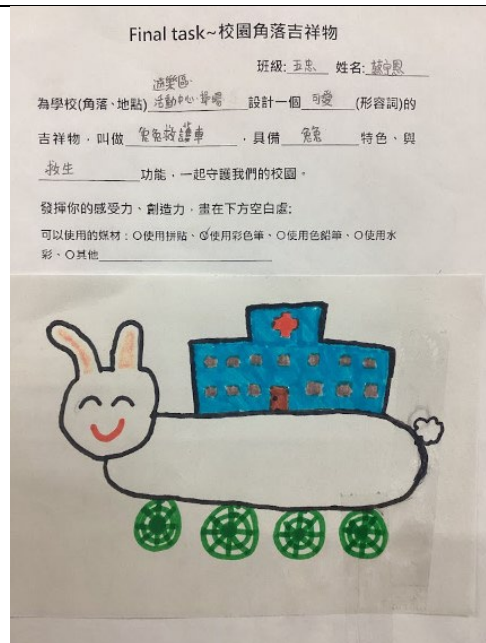 Final task~校園角落吉祥物
班級: 五忠 姓名:
遊樂區、
為學校(角落、地點) 活動中心、草皮 設計一個 可愛 (形容詞)的
吉祥物，叫做 兔兔救護車 ，具備 兔兔 特色、與
救生 功能，一起守護我們的校園。
發揮你的感受力、創造力，畫在下方空白處:
可以使用的媒材：○使用拼貼、○使用彩色筆、○使用色鉛筆、○使用水
彩、○其他